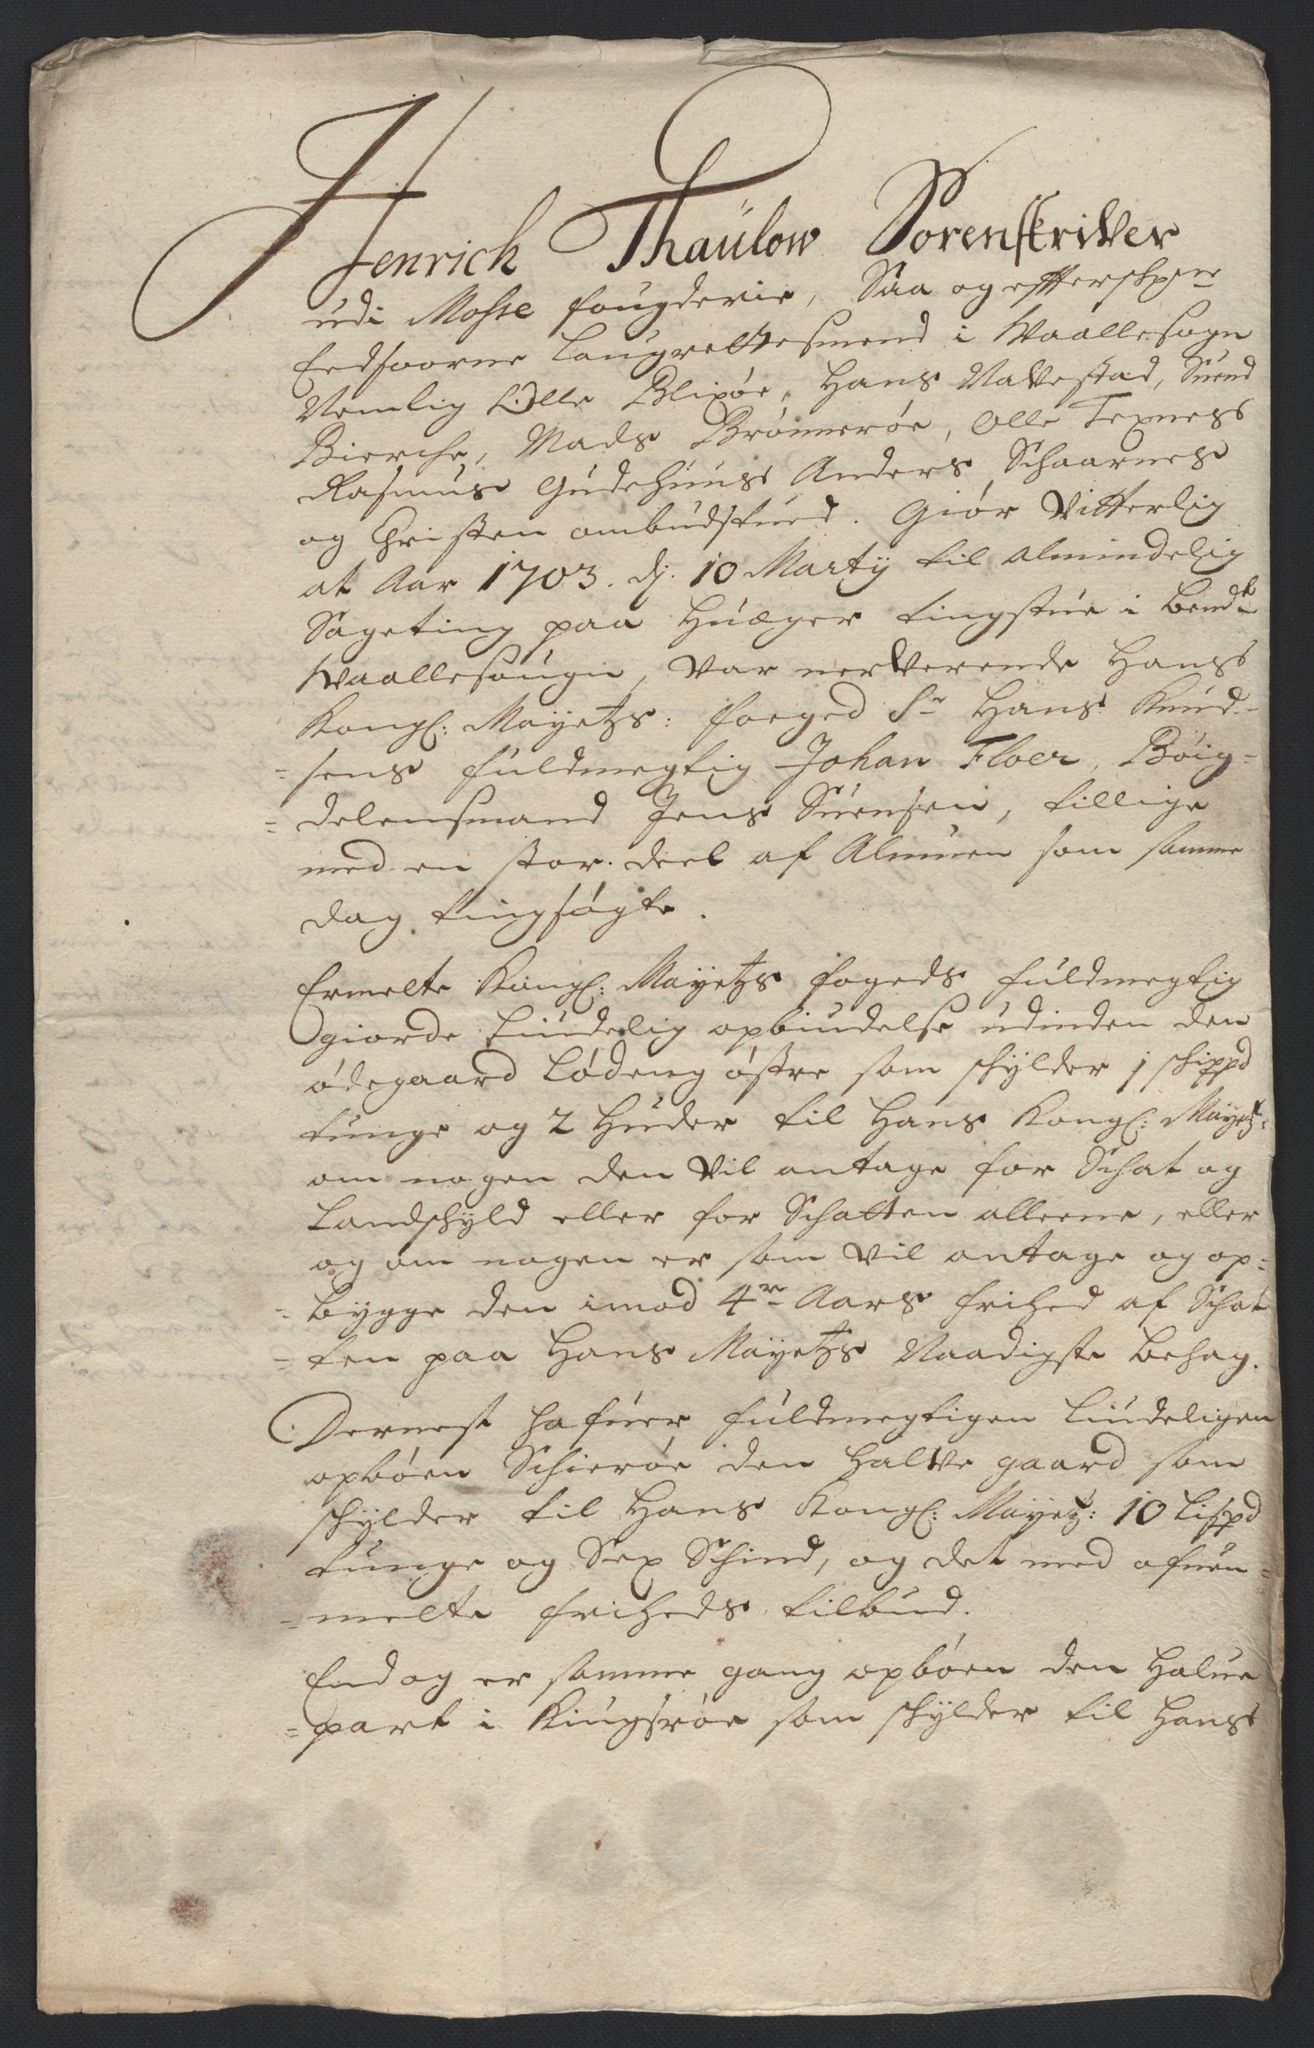 Henrich Thaulow Sorenskriver
udi Mosse fougderie, Saa og efftersKrne
Eedsoorne Laugrettesmend i Waallesogn
Nemlig Olle Blixøe, Hans Navestad, Suend
Bierche, Mads Brønnerøe, Olle Texness
Rasmus Gudehuus Anders Schaarnes
og Christen ombudstued. Giør Vitterlig
at Aar 1703. dj. 10 Martij til almindelig
Sageting paa Huæger tingstue i bemdte
Waallesougn, var nerverende Hans
Kongl: Mayetzs: foeged Sr Hans Knud-
-sens fuldmegtig Johan Floer, Bøig-
-delensmand Jens Suensen, tillige
med en stor deel af Almuen som samme
dag tingsøgte.
Ermelte Kongl: Mayetzs fogeds fuldmegtig
giorde liudelig opbiudelse udinden den
ødegaard Lødeng østre som schylder 1 schippd
tunge og 2 Huder til Hans Kongl: Mayetz:
om nogen den vil antage for Schat og
Landschyld eller for Schatten alleene, eller
og om nogen er som vil antage og op-
-bygge den imod 4re Aars frihed af Schat
-ten paa Hans Mayetzs Naadigste behag.
Dernest hafuer fuldmegtigen liudeligen
opbøen Schierøe den halve gaard som
schylder til Hans Kongl: Mayetz: 10 Lispd
tunge og Sex Schind, og det med ofuen-
-melte friheds tilbud.
End og er samme gang opbøen den halue
-part i Kingsrøe som schylder til Hans